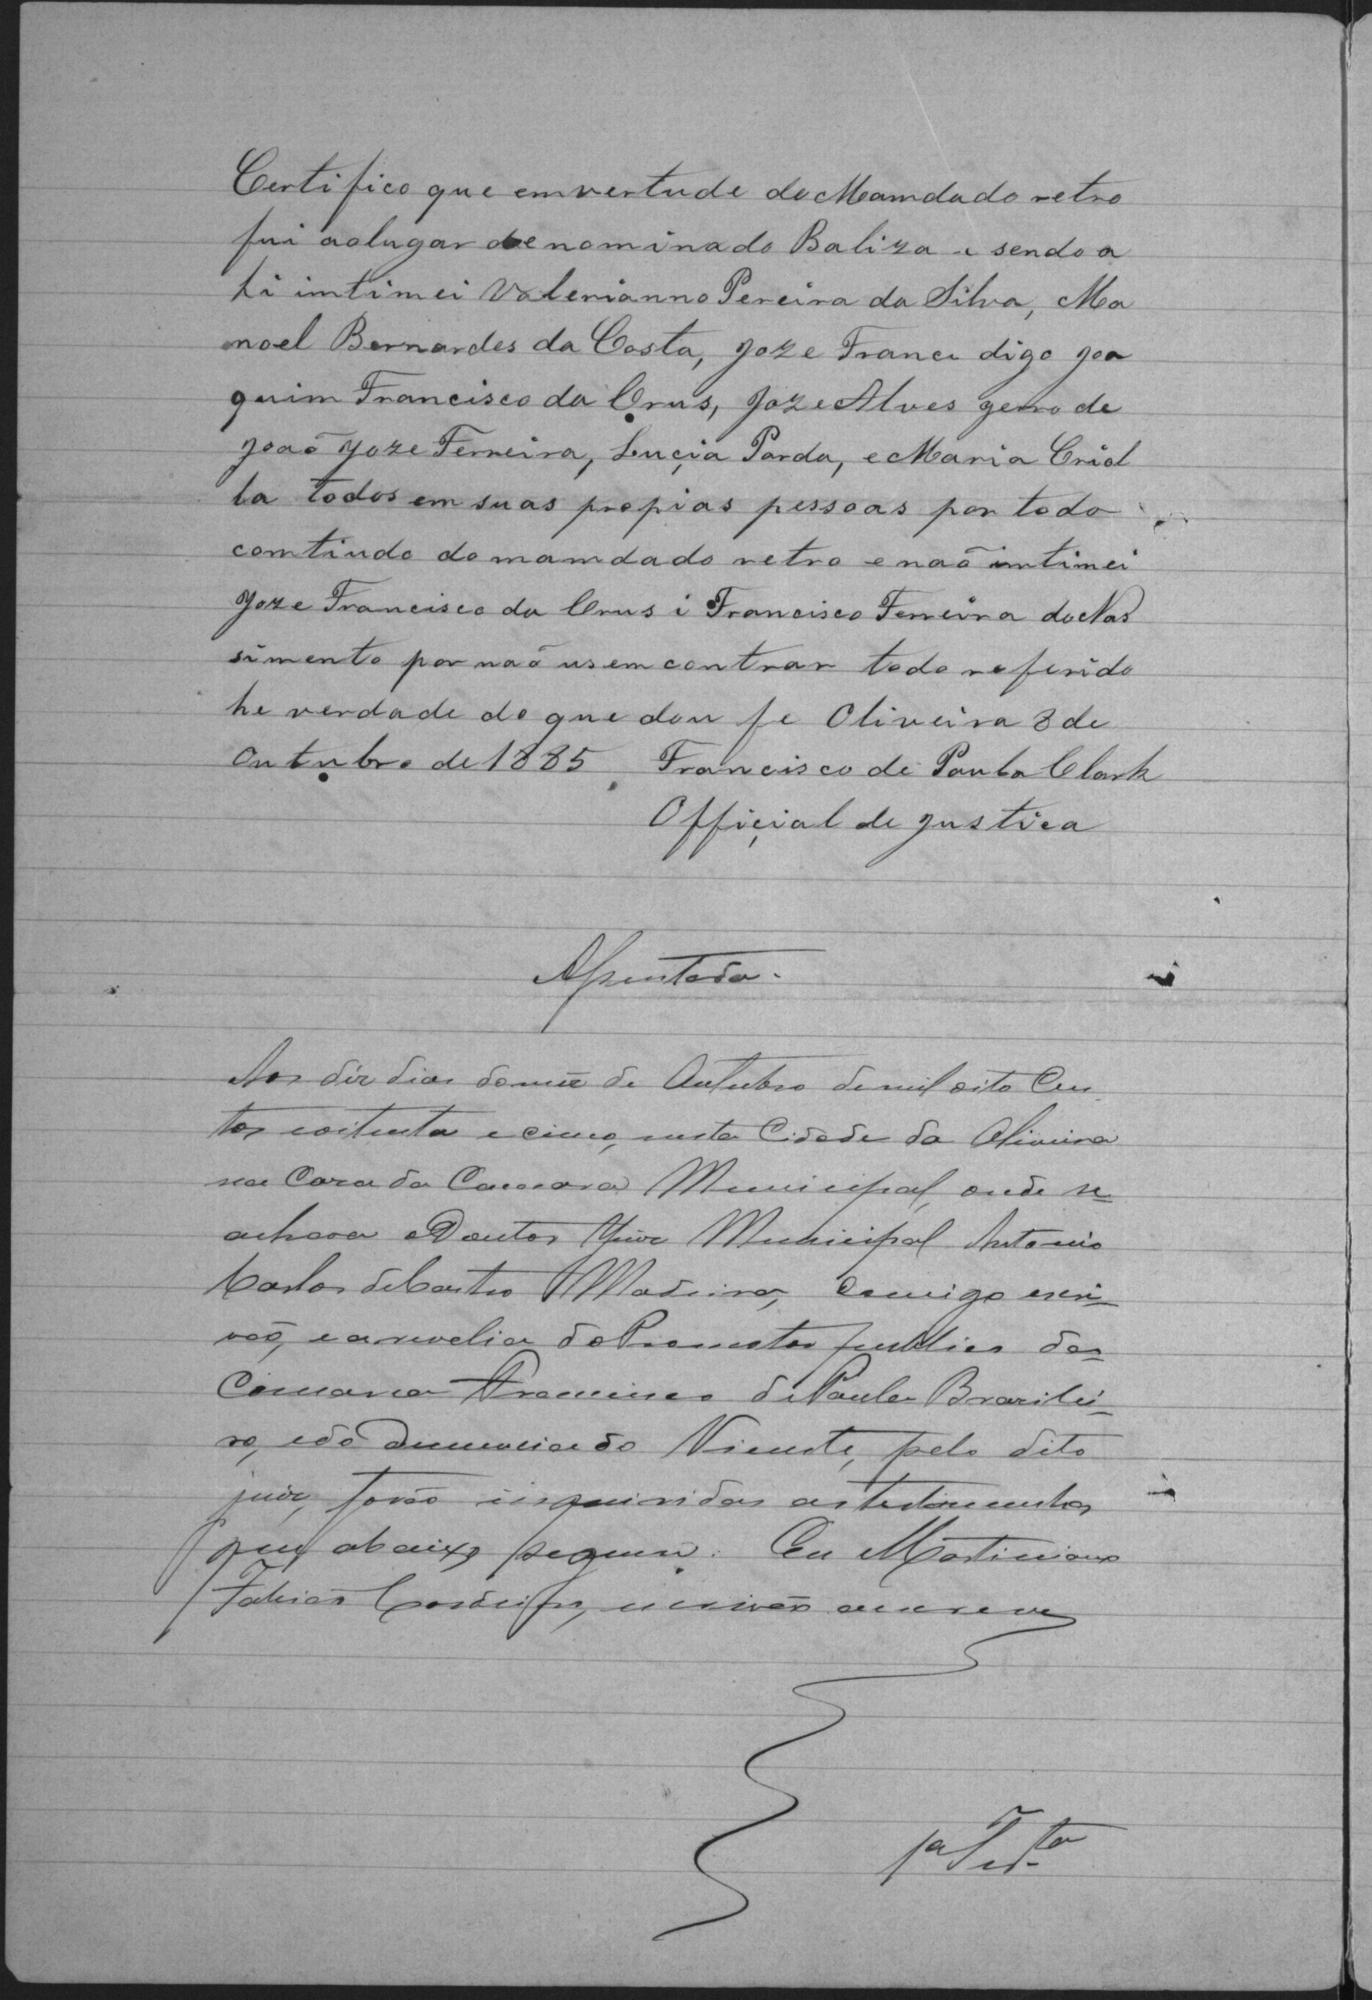 Certifico que em vertude do Mamdado retro
fui ao lugar denominado Baliza e sendo a
hi imtimei Valerianno Pereira da Silva, Ma
noel Bernardes da Costa, Joze Franci digo Joa
quim Francisco da Crus, Joze Alves genro de
Joaõ Joze Ferreira, Luçia Parda, e Maria Criol
la todos em suas propias pessoas por todo
comtiudo do mamdado retro e naõ imtimei
Joze Francisco da Crus i Francisco Ferreira do Nas
simento por naõ us emcontrar todo referido
he verdade do que dou fe Oliveira 8 de
Outubro de 1885 Francisco de Paula Clark
Offiçial de Justica
Assentada.
Aos dez dias do mez de Outubro de mil oito Cen
tos e oitenta e cinco, nesta Cidade da Oliveira
na Caza da Camara Municipal, onde se
achava o Doutor Juiz Municipal Antonio
Carlos de Castro Madeira, Comigo escri-
vaõ, e a revelia do Promotor publico da
Comarca Francisco de Paula Brazilei-
ro, e do Denunciado Vicente, pelo dito
juiz, foraõ inquiridas as testemunhas
que abaixo seguem. Eu Martiniano
Fabiaõ Cordeiro, escrivaõ o escrevi
1a Testa